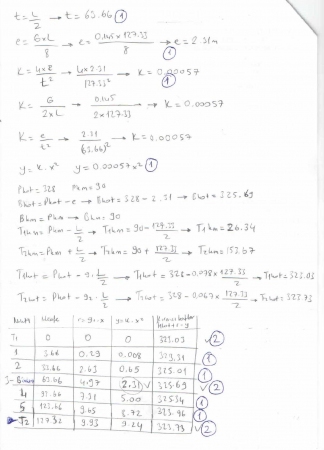 t = L/2 → t = 63.66 ①
e = G×L/8 → e = 0.145×127.33/8 → e = 2.31m ①
K = 4×e/t² → 4×2.31/127.33² → K = 0.00057 ①
K = G/2×L → 0.145/2×127.33 → K = 0.00057
K = e/t² → 2.31/(63.66)² → K = 0.00057
y = K.x² y = 0.00057x² ①
Pkot = 328 Pkm = 90
Bkot = Pkot - e → Bkot = 328 - 2.31 → Bkot = 325.69
Bkm = Pkm → Bkm = 90
T1km = Pkm - L/2 → T1km = 90 - 127.33/2 → T1km = 26.34
T2km = Pkm + L/2 → T2km = 90 + 127.33/2 → T2km = 153.67
T1kot = Pkot - g1.L/2 → T1kot = 328 - 0.078×127.33/2 → T1kot = 323.03
T2kot = Pkot - g2.L/2 → T2kot = 328 - 0.067×127.33/2 → T2kot = 323.73
T1 0 0 0 323.03 ②
1 3.66 0.29 0.008 323.31 ①
2 33.66 2.63 0.65 325.01 ①
3- 63.66 4.97 2.31 325.69 ②
4 93.66 7.31 5.00 325.34 ①
5 123.66 9.65 8.72 323.96 ①
T2 127.32 9.93 9.24 323.73 ②